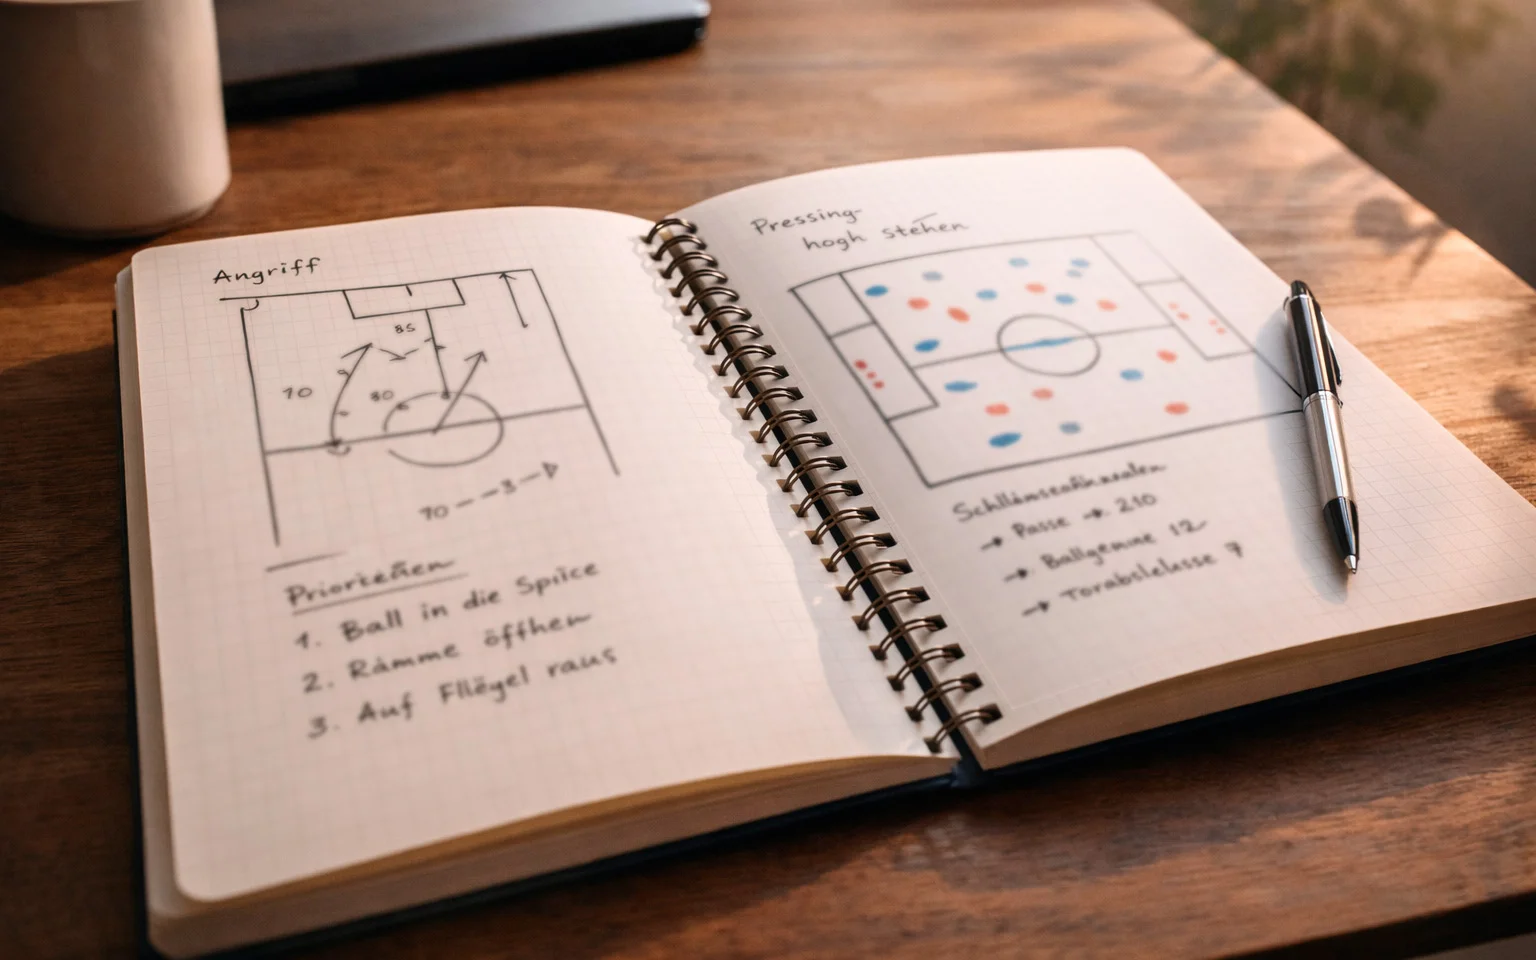 Angriff
85
70
80
70 – – 3 – →
Prioriteñen
1. Ball in die Spiice
2. Rämme öffhen
3. Auf Fllëgel raus
Pressing-
hogh stehen
→ Passe → 210
→ Ballgenme 12
→ Torabslelasse 7